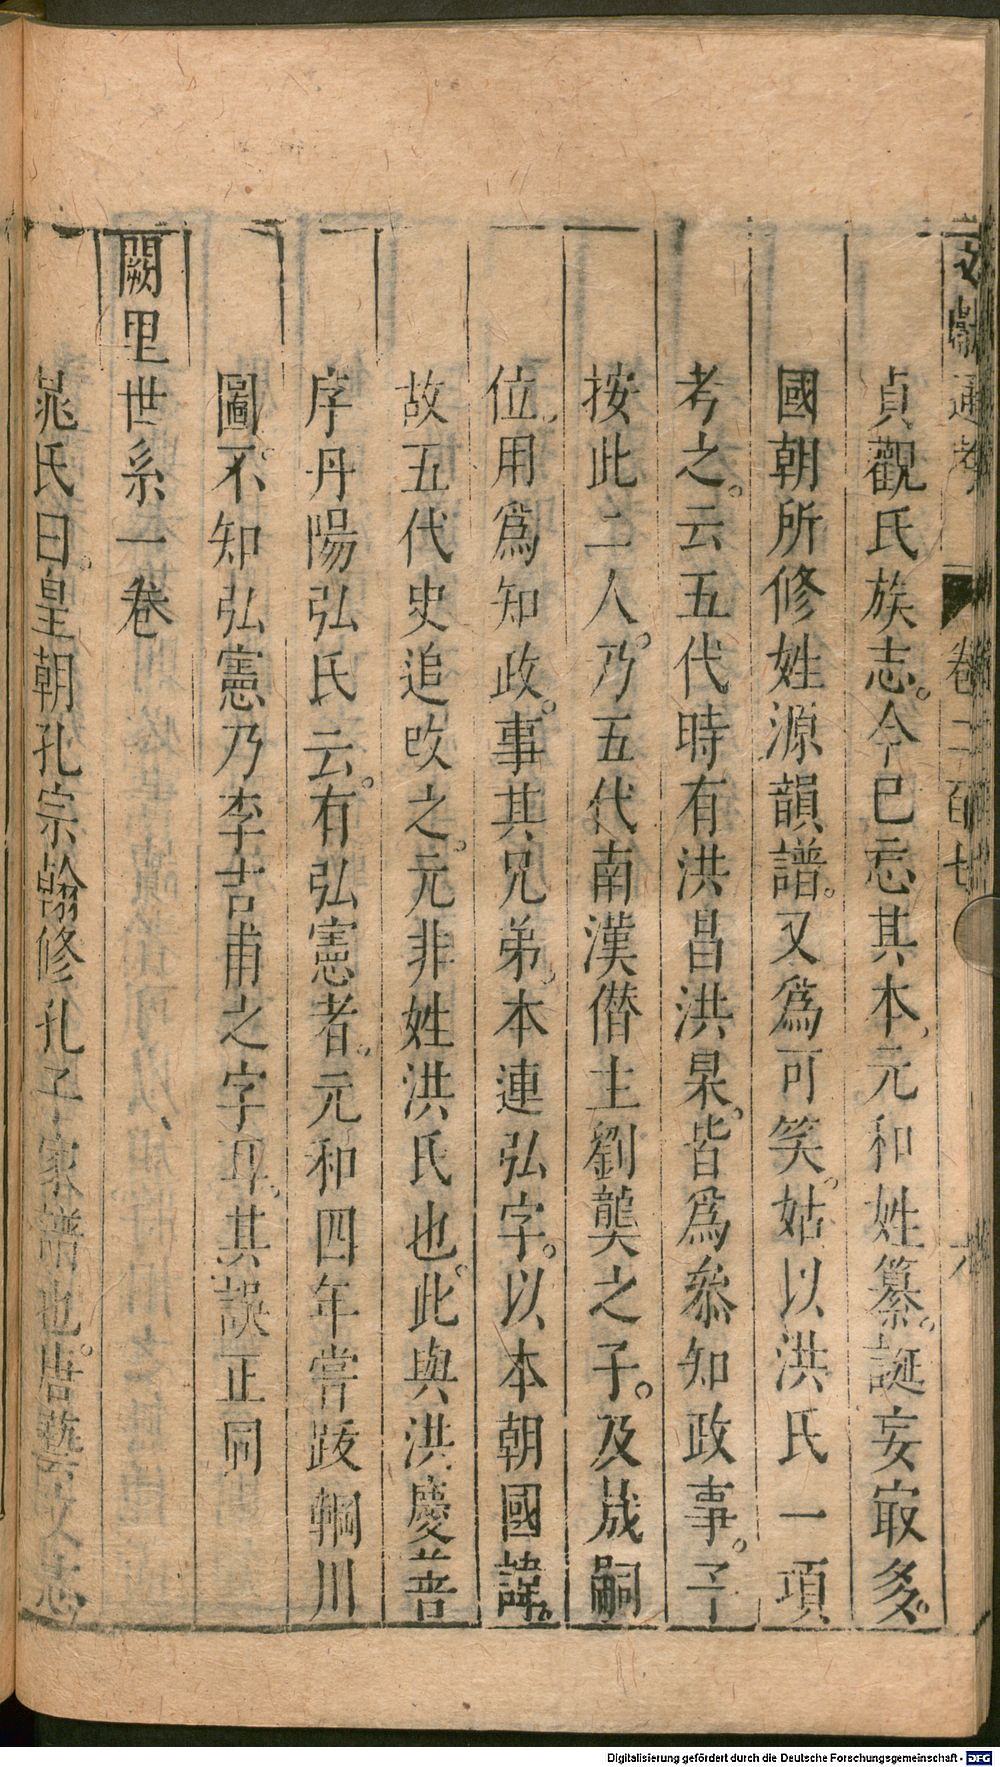 文獻通考 卷二百七 六
貞觀氏族志。今已忘其本、元和姓纂。誕妄㝡多。
國朝所修姓源韻譜。又爲可笑。姑以洪氏一項
考之。云五代時有洪昌洪杲。皆爲叅知政事。予
按此二人。乃五代南漢僭主劉龑之子。及晟嗣
位。用爲知政。事其兄弟。本連弘字。以本朝國諱。
故五代史追攺之。元非姓洪氏也。此與洪慶善
序丹陽弘氏云。有弘憲者。元和四年甞跋輞川
圖。不知弘憲乃李吉甫之字耳。其誤正同
闕里世系一卷
晁氏曰。皇朝孔宗翰修孔子家譜也。唐藝文志
Digitalisierung gefördert durch die Deutsche Forschungsgemeinschaft - DFG